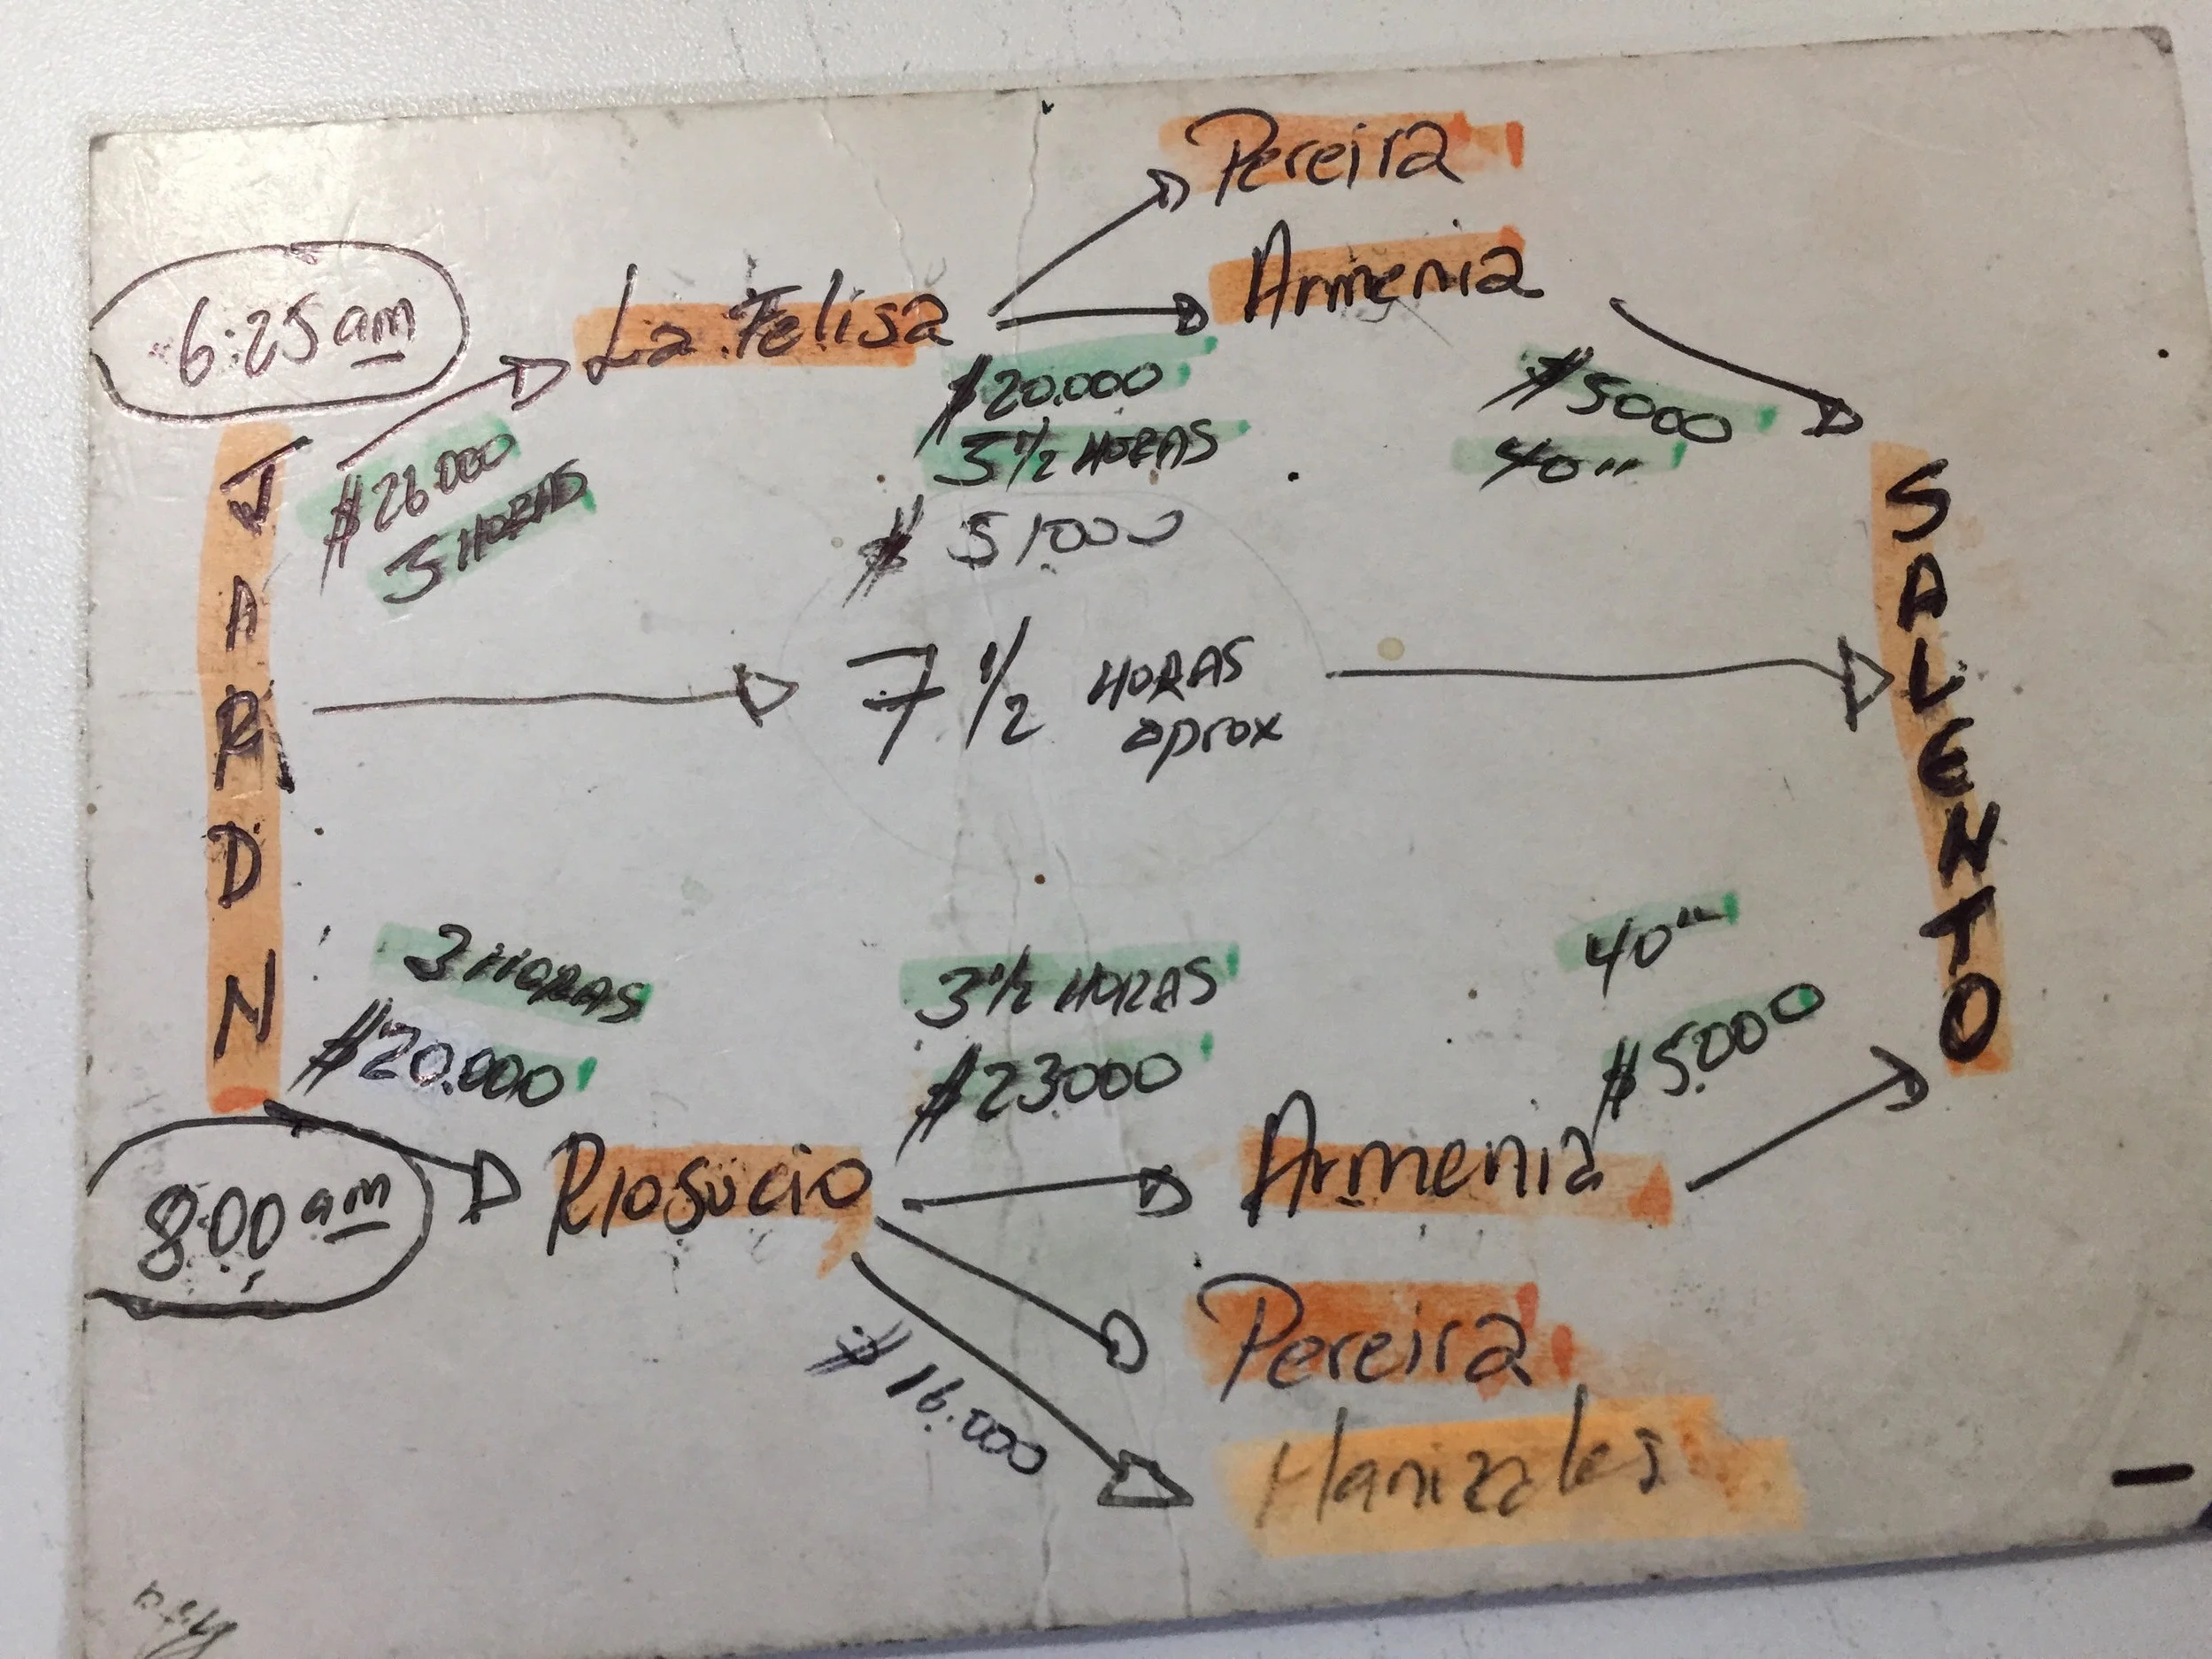 Pereira
6:25 am
La Felisa
Armenia
$26.000
3 HORAS
$20.000
3 1/2 HORAS
$5000
40"
$51.000
JARDN
7 1/2 HORAS
aprox
SALENTO
3 HORAS
$20.000
3 1/2 HORAS
$23000
40"
$5.000
8:00 am
Riosucio
Armenia
Pereira
$16.000
Manizales